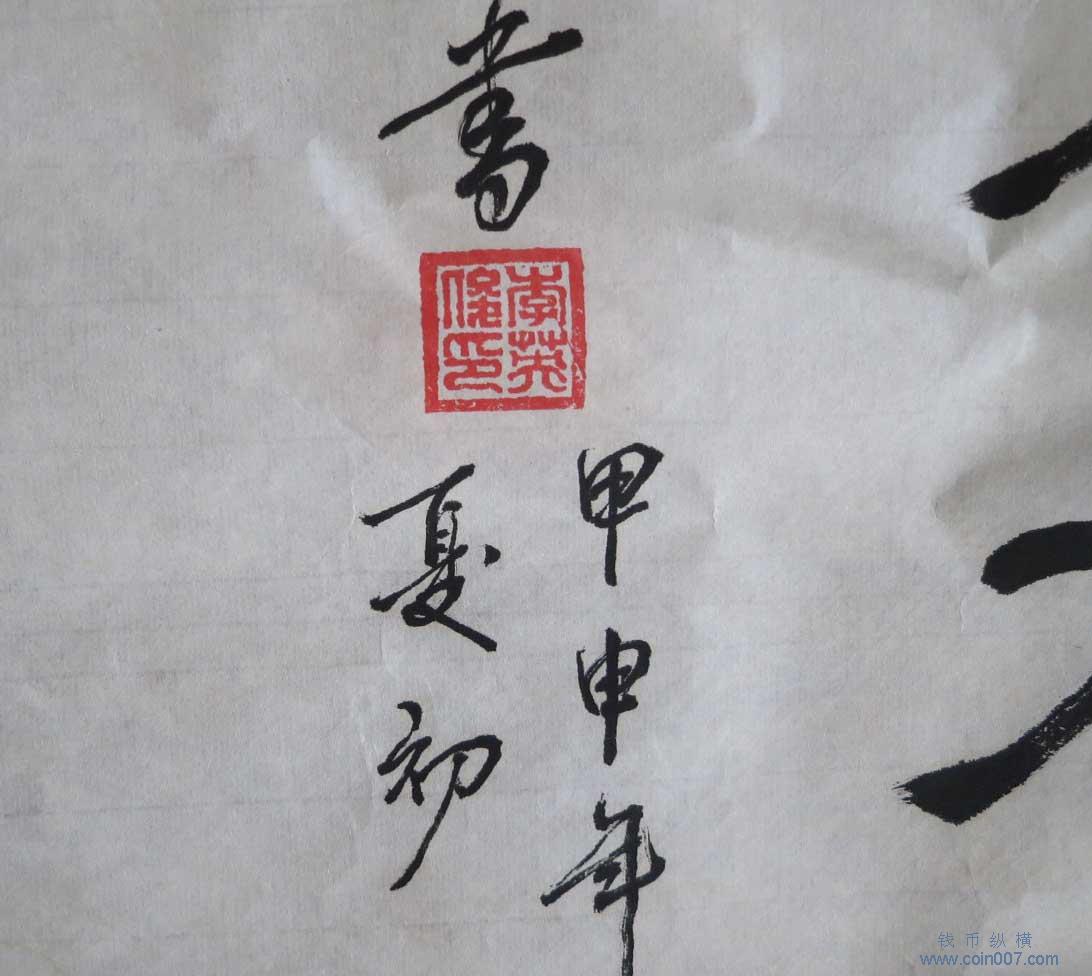 书
李英俊印
甲申年
夏初
钱币纵横
www.coin007.com